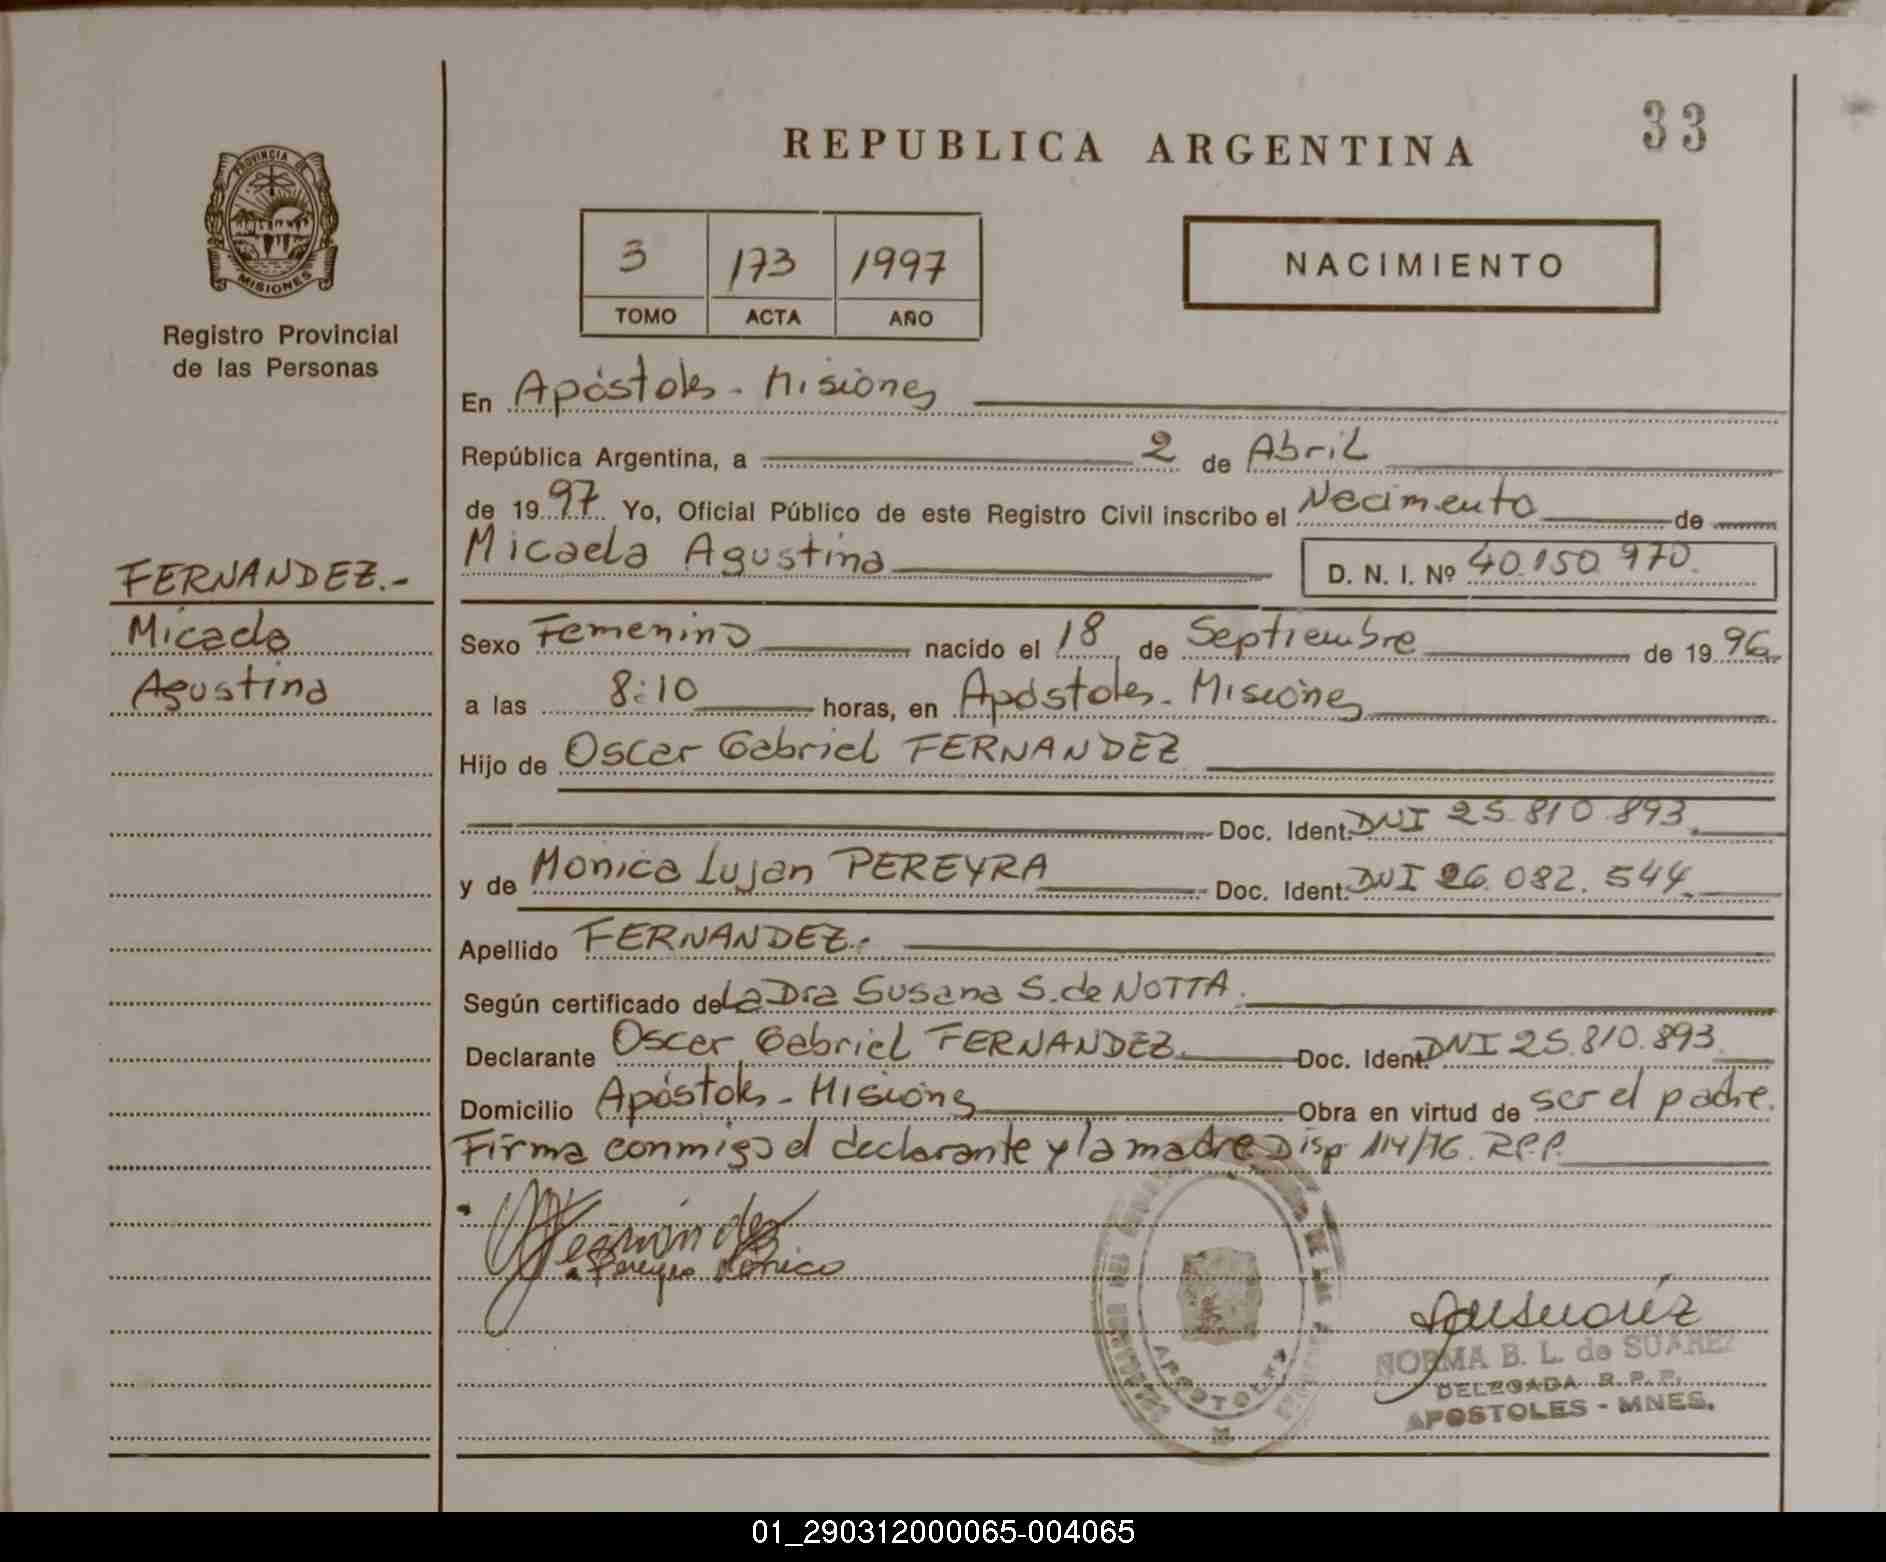 33
REPUBLICA ARGENTINA
PROVINCIA DE
MISIONES
Registro Provincial
de las Personas
3 173 1997
TOMO ACTA AÑO
NACIMIENTO
En Apóstoles - Misiones
República Argentina, a 2 de Abril
de 1997 Yo, Oficial Público de este Registro Civil inscribo el Nacimiento de
Micaela Agustina D. N. I. Nº 40.150.970.
FERNANDEZ.-
Micaela
Agustina
Sexo Femenino nacido el 18 de Septiembre de 1996
a las 8:10 horas, en Apóstoles - Misiones
Hijo de Oscar Gabriel FERNANDEZ
Doc. Ident. DNI 25.810.893.
y de Mónica Lujan PEREYRA Doc. Ident. DNI 26.082.544.
Apellido FERNANDEZ.-
Según certificado de La Dra Susana S. de NOTTA.
Declarante Oscar Gabriel FERNANDEZ. Doc. Ident. DNI 25.810.893.
Domicilio Apóstoles - Misiones Obra en virtud de ser el padre.
Firma conmigo el declarante y la madre Disp 114/76. R.P.P.
Fernández
Pereyra Mónica
APOSTOLES
NORMA B. L. de SUAREZ
DELEGADA R. P. P.
APOSTOLES - MNES.
01_290312000065-004065